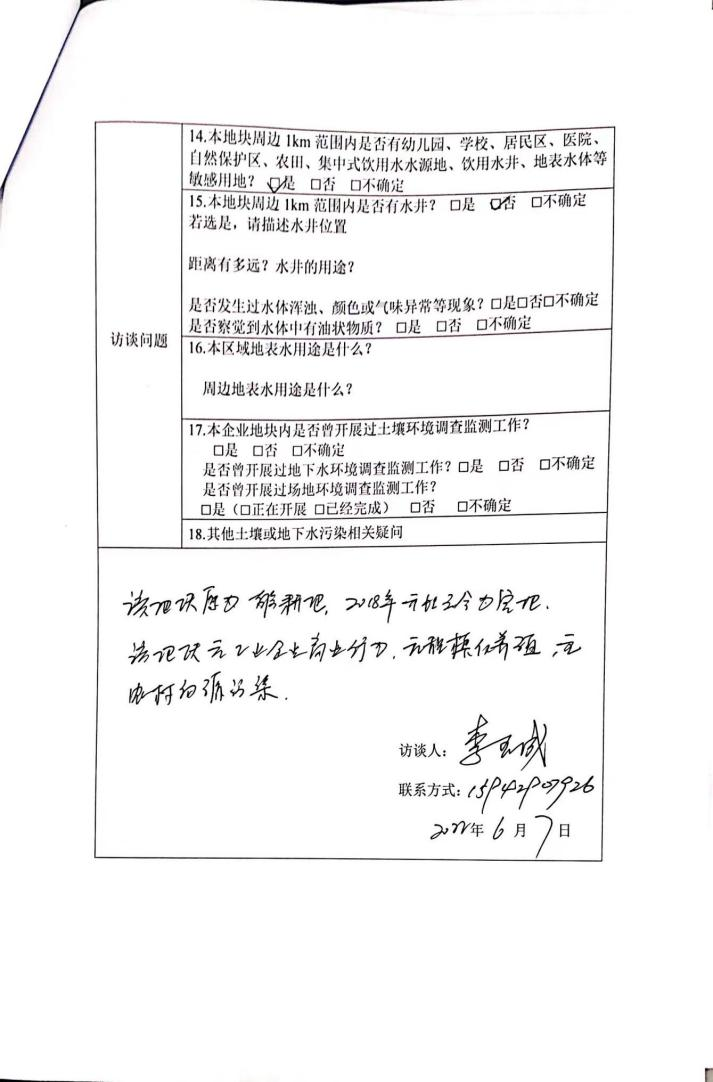 14.本地块周边 1km 范围内是否有幼儿园、学校、居民区、医院、
自然保护区、农田、集中式饮用水水源地、饮用水井、地表水体等
敏感用地? ☑是 □否 □不确定
15.本地块周边 1km 范围内是否有水井? □是 ☑否 □不确定
若选是，请描述水井位置
距离有多远? 水井的用途?
是否发生过水体浑浊、颜色或气味异常等现象? □是□否□不确定
是否察觉到水体中有油状物质? □是 □否 □不确定
访谈问题
16.本区域地表水用途是什么?
周边地表水用途是什么?
17.本企业地块内是否曾开展过土壤环境调查监测工作?
□是 □否 □不确定
是否曾开展过地下水环境调查监测工作? □是 □否 □不确定
是否曾开展过场地环境调查监测工作?
□是（□正在开展 □已经完成） □否 □不确定
18.其他土壤或地下水污染相关疑问
该地块原为 耕地，2018年 至今为空地.
该地块无工业企业商业行为，无规模化养殖，无
农村面源污染.
访谈人: 李玉成
联系方式: 15942907926
2022年 6 月 7 日